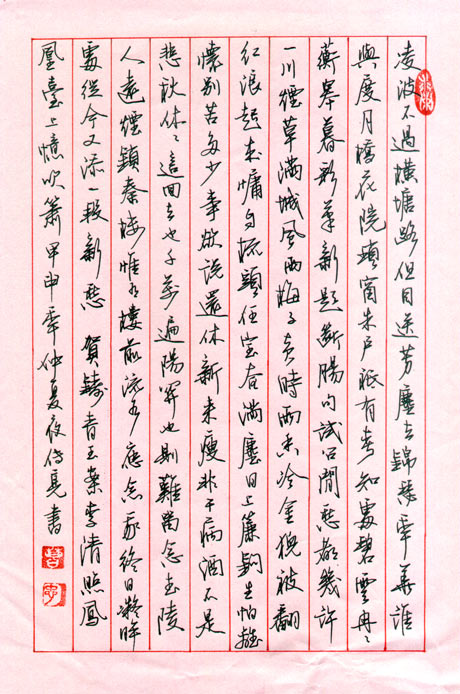 凌波不過橫塘路但目送芳塵去錦瑟年華誰
與度月橋花院瑣窗朱戶祇有春知處碧雲冉〻
蘅皋暮彩筆新題斷腸句試問閒愁都幾許
一川煙草滿城風雨梅子黃時雨香冷金猊被翻
紅浪起來慵自梳頭任寶奩滿塵日上簾鉤生怕離
懷別苦多少事欲說還休新來瘦非干病酒不是
悲秋休〻這回去也千萬遍陽關也則難留念武陵
人遠煙鎖秦樓惟有樓前流水應念我終日凝眸
處從今又添一段新愁 賀鑄青玉案李清照鳳
凰臺上憶吹簫 甲申年仲夏夜 書